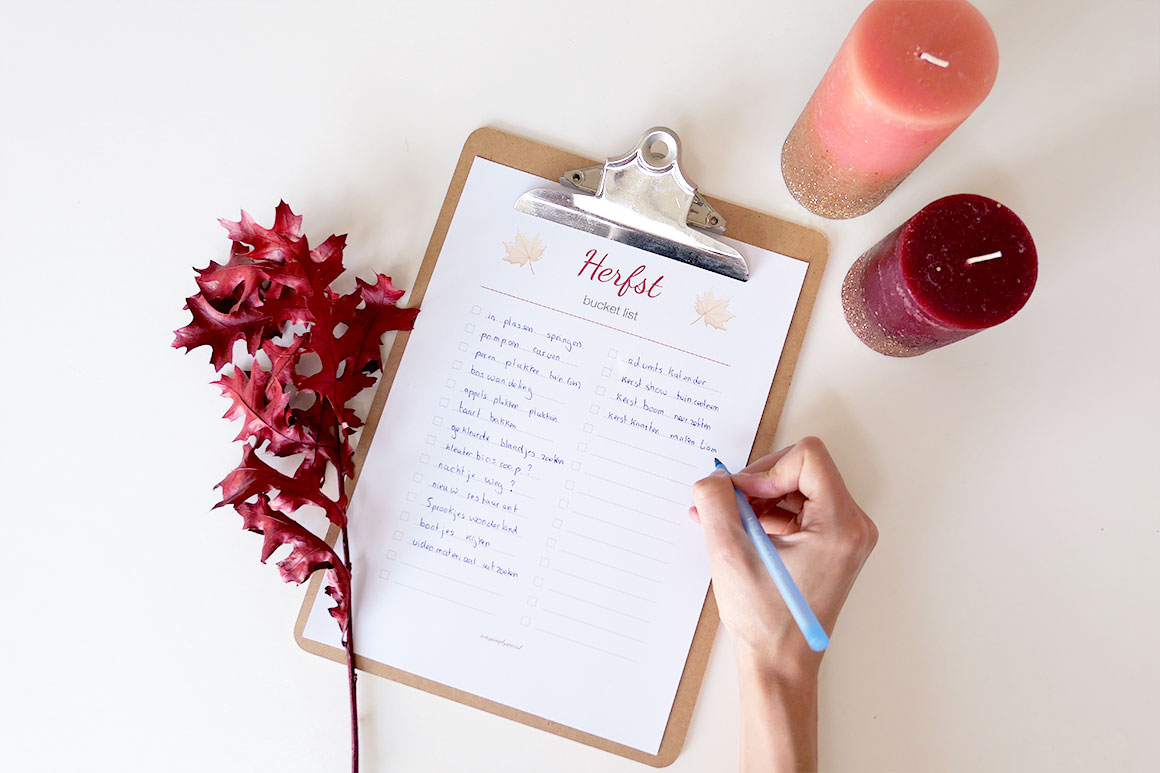 Herfst
bucket list
in plassen springen
pompoen carven
peren plukken tuin
boswandeling
appels plukken plukken
taart bakken
gekleurde blaadjes zoeken
kleuter bioscoop ?
nachtje weg ?
nieuw restaurant
Sprookjes wonderland
bootjes kijken
videomateriaal uitzoeken
advents kalender
kerst show tuincentrum
kerst boom neerzetten
kerst kaarten maken Liam